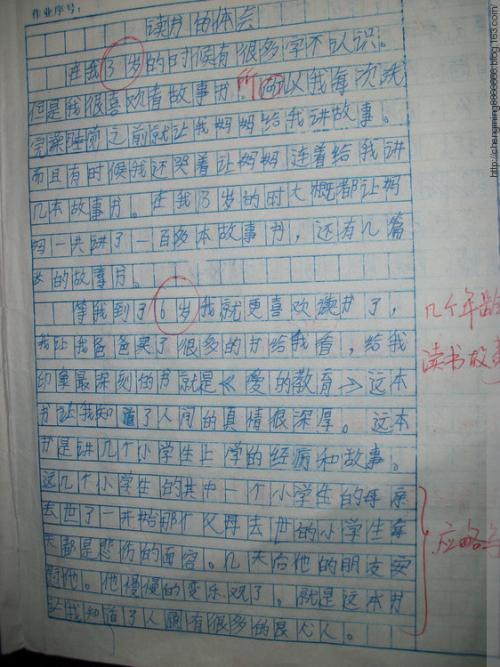 作业序号:
读书的体会
在我3岁的时候有很多字不认识。
但是我很喜欢看故事书,所以我每次洗
完澡睡前之前就让我妈妈给我讲故事。
而且有时候我还哭着让妈妈连着给我讲
几本故事书。在我3岁的时大概都让妈
妈一共讲了一百多本故事书,还有几篇
的故事书。
等我到了6岁我就更喜欢读书了,
我让我爸爸买了很多的书给我看,给我
印象最深刻的书就是《爱的教育》这本
书让我知道了人间的真情很深厚。这本
书是讲几个小学生上学的经历和故事。
这几个小学生的其中一个小学生的母亲
去世了一开始那个父母去世的小学生每
天都是悲伤的面容。几天后他的朋友安
慰他。他慢慢的变乐观了。就是这本书
让我知道了人间有很多的好人。
几个年龄
读书故事
应略写